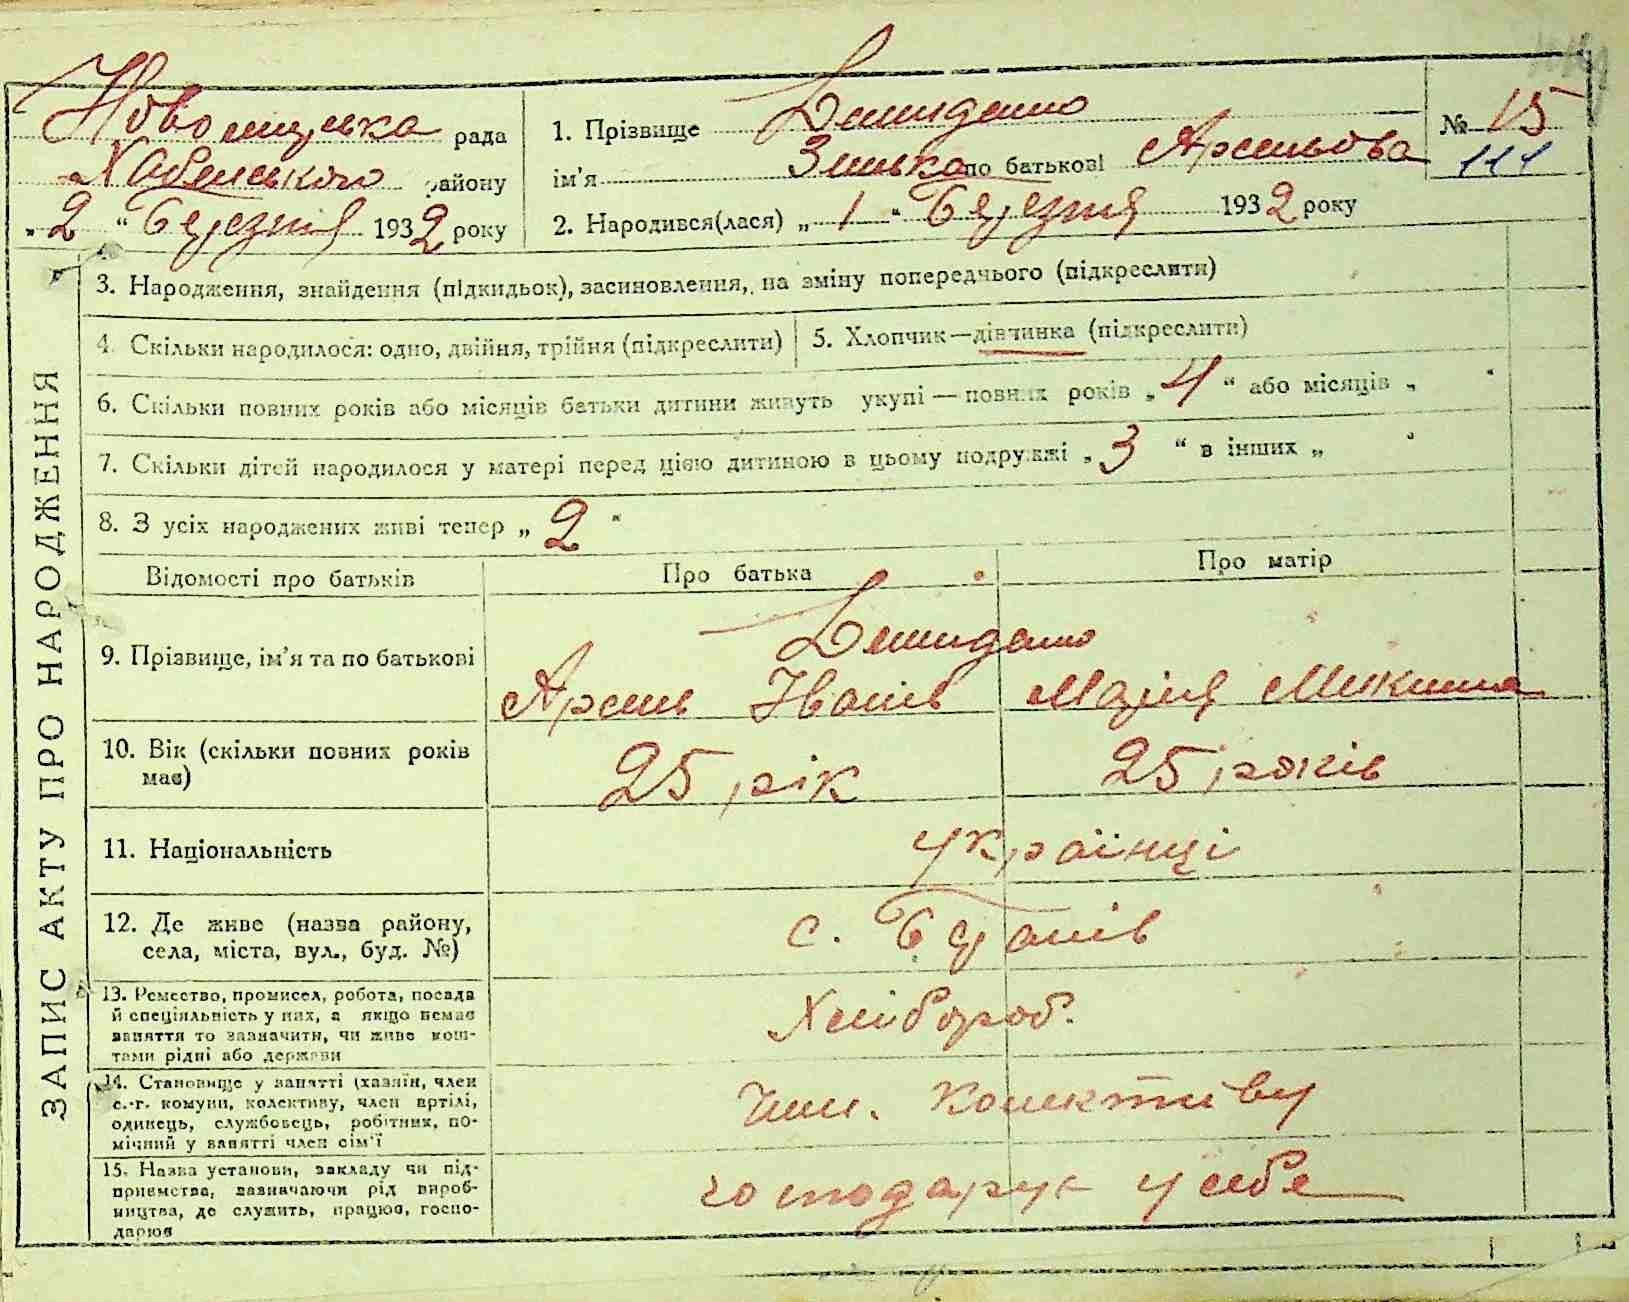 рада
Хабенського району
„2“ Березня 1932 року
1. Прізвище Демиденко
ім’я Зинька по батькові Арсеньова
2. Народився(лася) „1“ Березня 1932 року
№ 15
111
3. Народження, знайдення (підкидьок), засиновлення, на зміну попереднього (підкреслити)
4. Скільки народилося: одно, двійня, трійня (підкреслити)
5. Хлопчик—дівчинка (підкреслити)
6. Скільки повних років або місяців батьки дитини живуть укупі — повних років „4“ або місяців „ “
7. Скільки дітей народилося у матері перед цією дитиною в цьому подружжі „3“ в інших „ “
8. З усіх народжених живі тепер „2“
ЗАПИС АКТУ ПРО НАРОДЖЕННЯ
Відомості про батьків
Про батька
Про матір
9. Прізвище, ім’я та по батькові
Демиденко
Арсень Іванів
Марія
10. Вік (скільки повних років
має)
25 рік
25 років
11. Національність
українці
12. Де живе (назва району,
села, міста, вул., буд. №)
с.
13. Ремество, промисел, робота, посада
й спеціяльність у них, а якщо немає
заняття то зазначити, чи живе кош-
тами рідні або держави
Хлібороб.
14. Становище у занятті (хазяїн, член
с.-г. комуни, колективу, член артілі,
одинець, службовець, робітник, по-
мічний у занятті член сім’ї
Член. колективу
15. Назва установи, закладу чи під-
приємства, зазначаючи рід вироб-
ництва, де служить, працює, госпо-
дарює
у себе